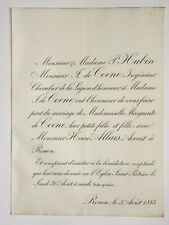 Monsieur & Madame P. Hubin
Monsieur J. de Coene Ingénieur
Chevalier de la Légion d'honneur & Madame
J. de Coene ont l'honneur de vous faire
part du mariage de Mademoiselle Marguerite
de Coene, leur petite fille et fille, avec
Monsieur Henri Allais, Avocat à
Rouen.
Et vous prient d'assister à la bénédiction nuptiale
qui leur sera donnée en l'Eglise Saint Patrice le
Lundi Août, à midi très précis.
Rouen, le 3 Août 1883.